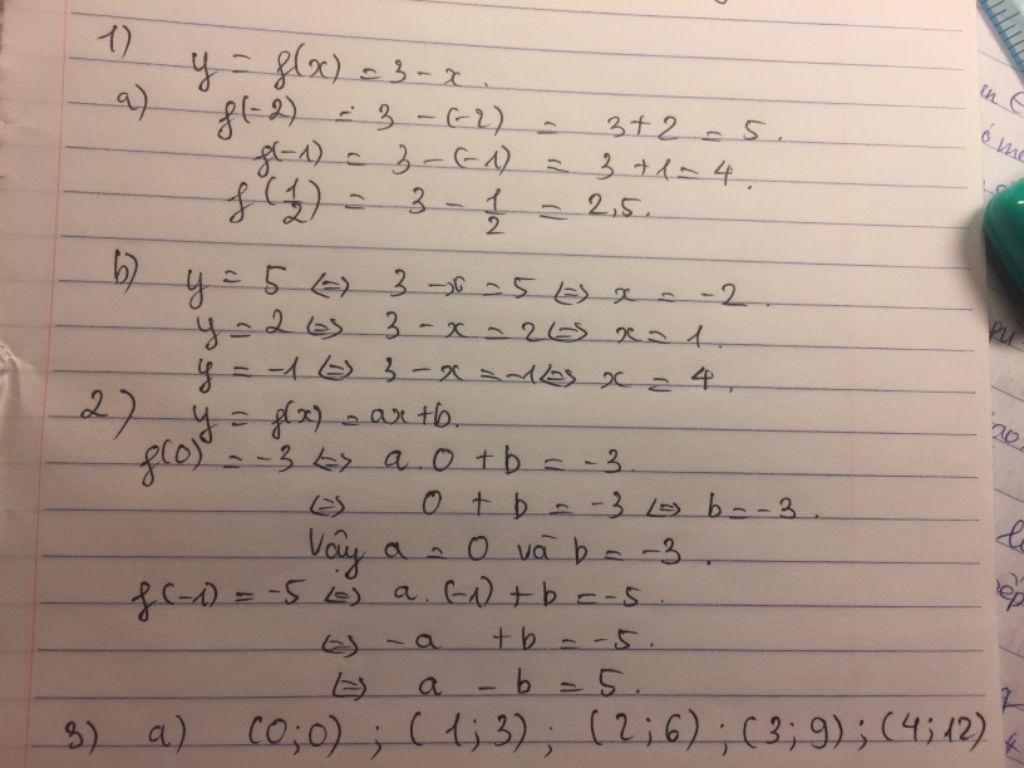 1)
y = f(x) = 3 - x.
a) f(-2) = 3 - (-2) = 3 + 2 = 5.
f(-1) = 3 - (-1) = 3 + 1 = 4.
f(1/2) = 3 - 1/2 = 2,5.
b) y = 5 ⇔ 3 - x = 5 ⇔ x = -2.
y = 2 ⇔ 3 - x = 2 ⇔ x = 1.
y = -1 ⇔ 3 - x = -1 ⇔ x = 4.
2) y = f(x) = ax + b.
f(0) = -3 ⇔ a.0 + b = -3.
⇔ 0 + b = -3 ⇔ b = -3.
Vậy a = 0 và b = -3.
f(-1) = -5 ⇔ a.(-1) + b = -5.
⇔ -a + b = -5.
⇔ a - b = 5.
3) a) (0;0) ; (1;3) ; (2;6) ; (3;9) ; (4;12)